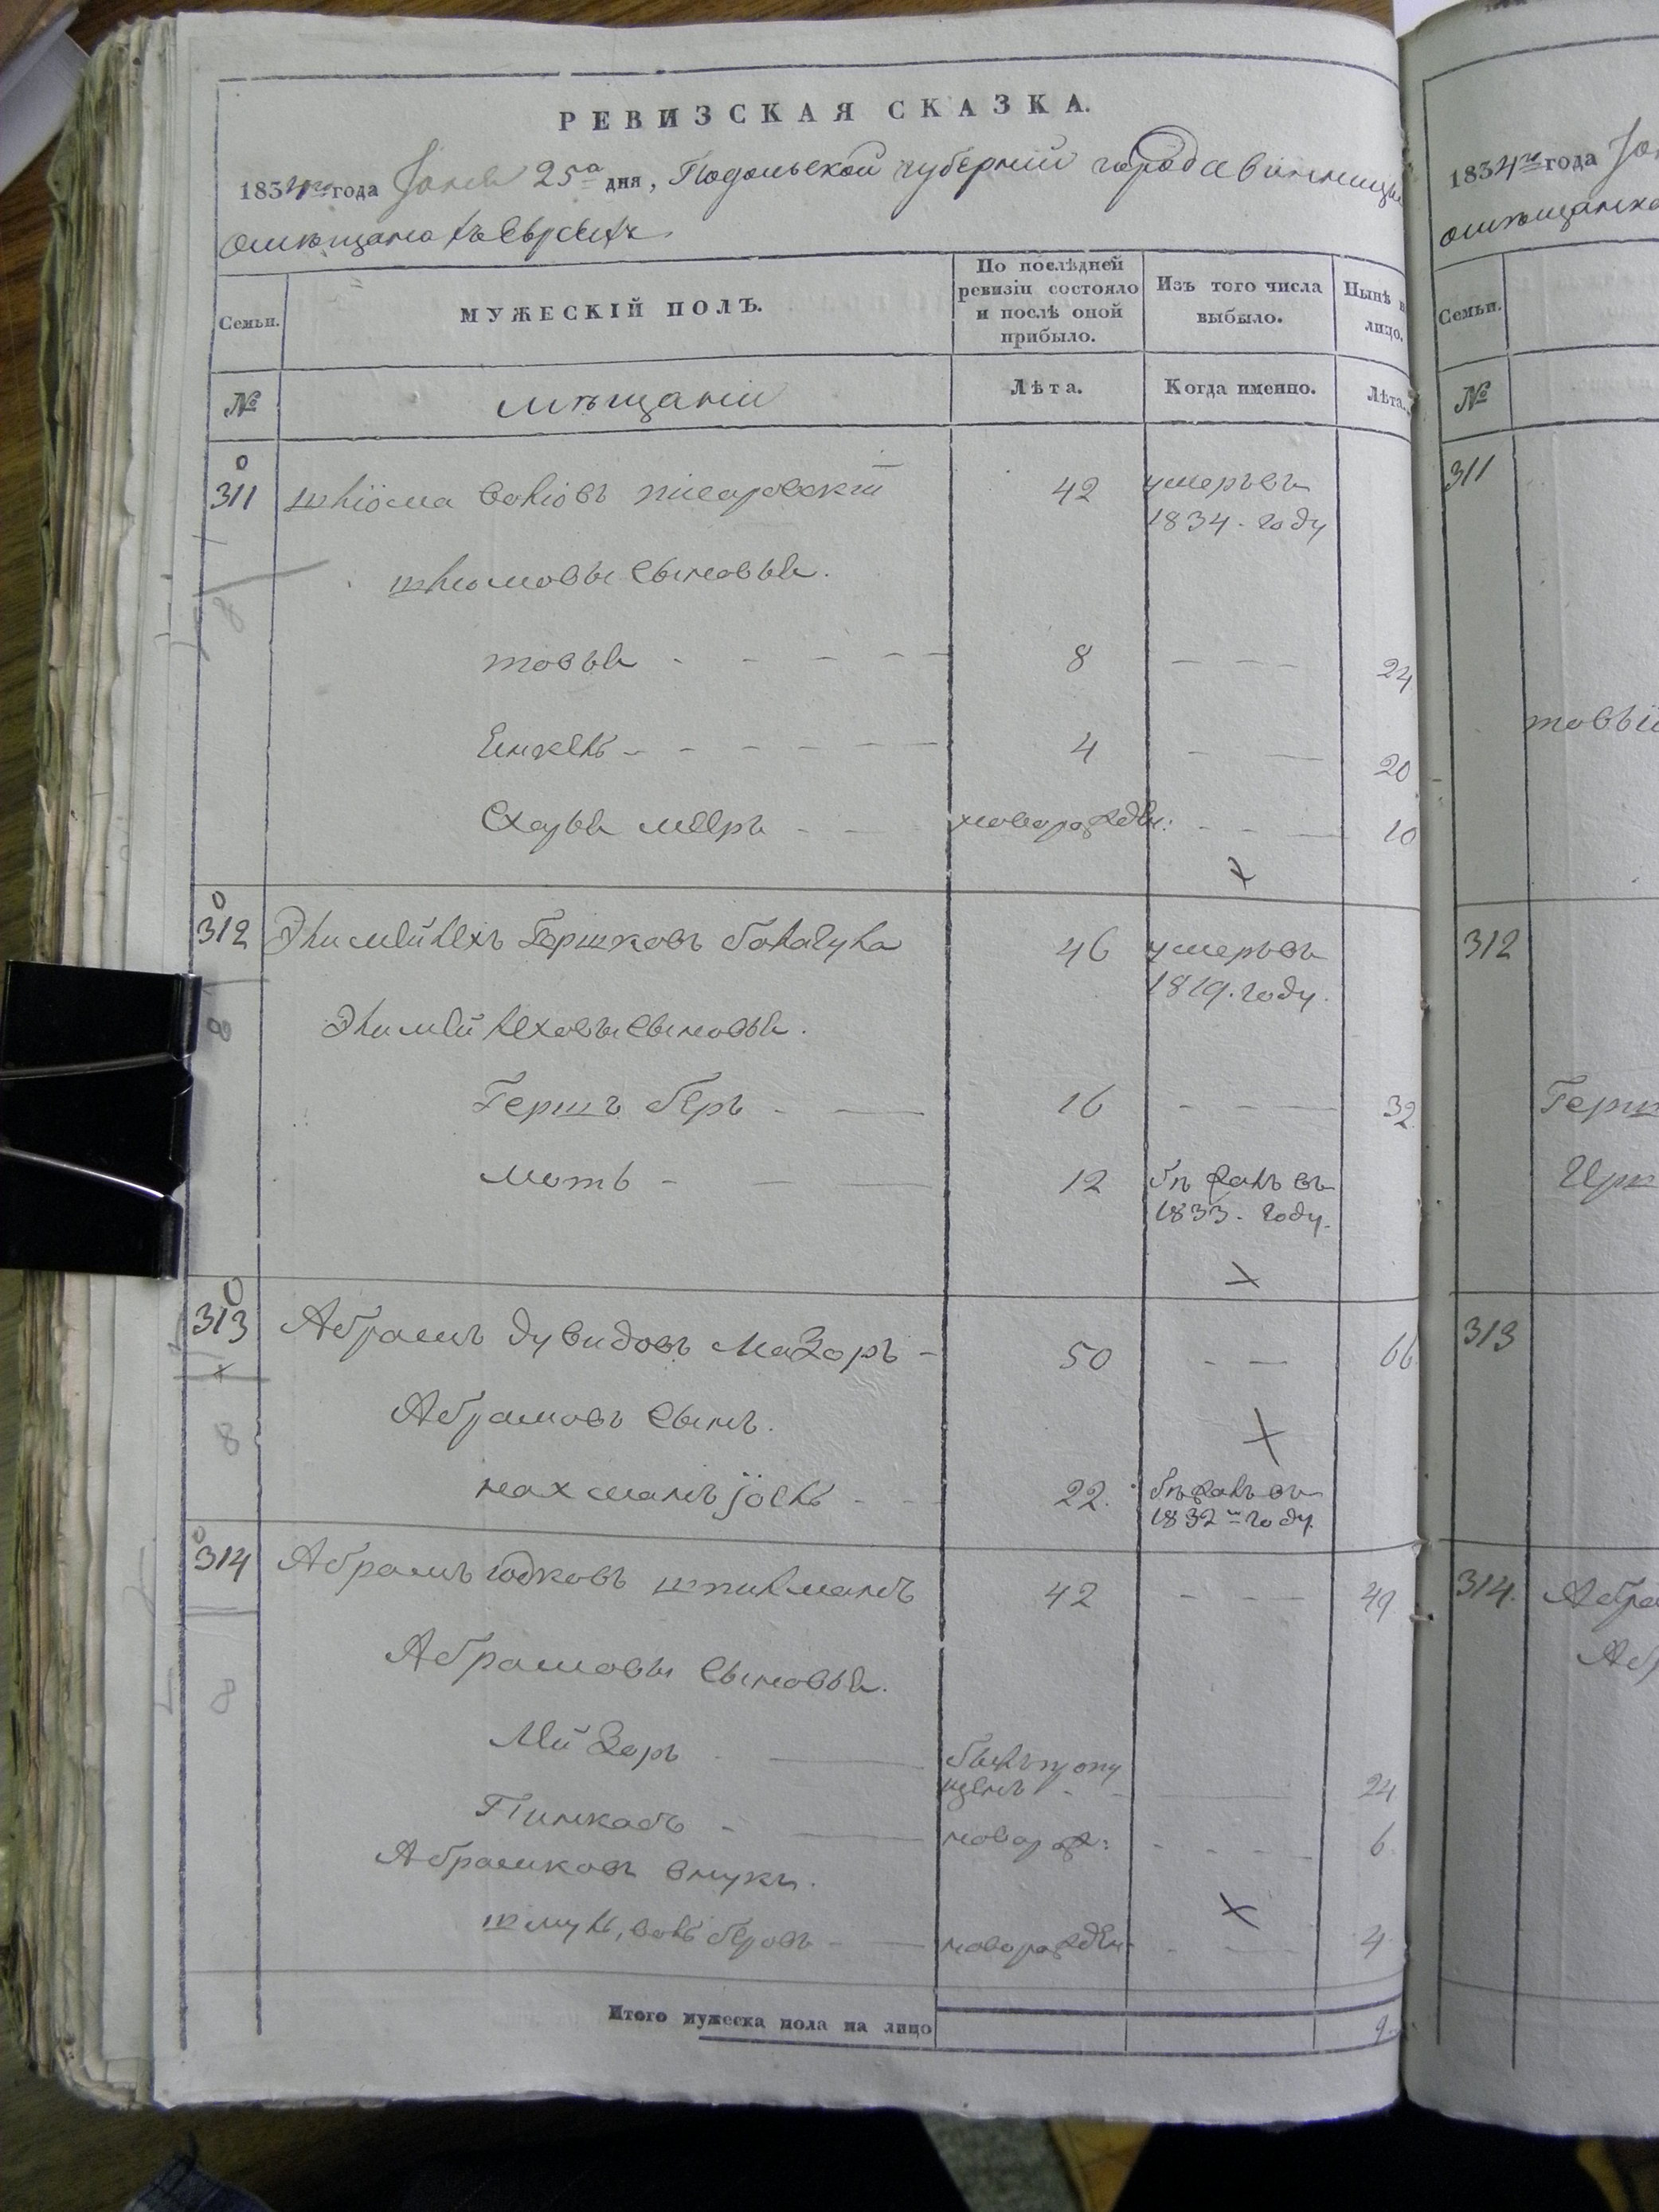 РЕВИЗСКАЯ СКАЗКА.
1834го года 25го дня, Подольской губернии города Винницы
омѣщанахъ Евреяхъ.
Семьи.
МУЖЕСКІЙ ПОЛЪ.
По послѣдней ревизіи состояло и послѣ оной прибыло.
Изъ того числа выбыло.
Нынѣ на лицо.
№
мѣщани
Лѣта.
Когда именно.
Лѣта.
311 шліома волковъ писаровскій 42 умеръ въ
1834. году
шліомовы сыновья.
товья - - - - - 8 - - - 24
Янкель - - - - - - 4 - - 20
мееръ - - новорожден: - - - 10
312 Элимейлехъ Гершковъ 46 умеръ въ
1819. году.
Элимейлеховы сыновья.
Гершъ беръ - - 16 - - 32
мотъ - - - 12 бѣжалъ въ
1833. году.
313 Абрамъ дувидовъ Мазоръ - 50 - - 66
Абрамовъ сынъ.
нахманъ іось - - 22. бѣжалъ въ
1832м году.
314 Абрамъ юдковъ шпилманъ 42 - - - 49
Абрамовы сыновья.
Лейзоръ - - былъ пропу
щенъ - - - 24
Пинкасъ - - новорож: - - - - 6
Абрамковъ внукъ.
шмуль, беровъ - - новорожден - - - 4
Итого мужеска пола на лицо 9
1834го года
омѣщанах
Семьи.
№
311
312
Герш
313
314. Абра
Абр